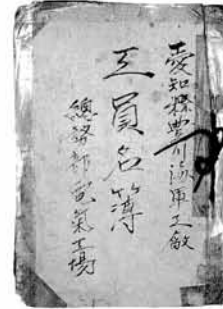 愛知縣豊川海軍工廠
工員名簿
總務部電氣工場